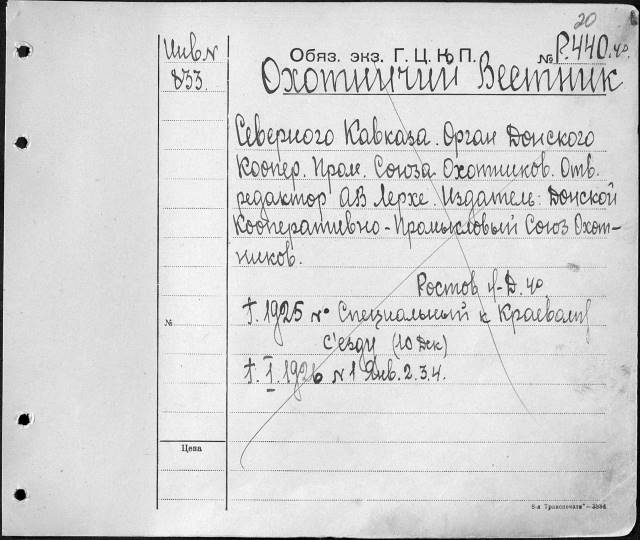 20
Инв №
833.
Обяз. экз. Г. Ц. К. П.
№ Р.440. 4о
Охотничий Вестник
Северного Кавказа. Орган Донского
Коопер. Пром. Союза Охотников. Отв.
редактор А В Лерхе. Издатель: Донской
Кооперативно-Промысловый Союз Охот-
ников.
Ростов н-Д. 4о.
г. 1925 № Специальный к Краевому
№
с'езду (10 Дек)
г. I. 1926 № 1 Янв. 2. 3. 4.
Цена
8-я Транспечати"—3884